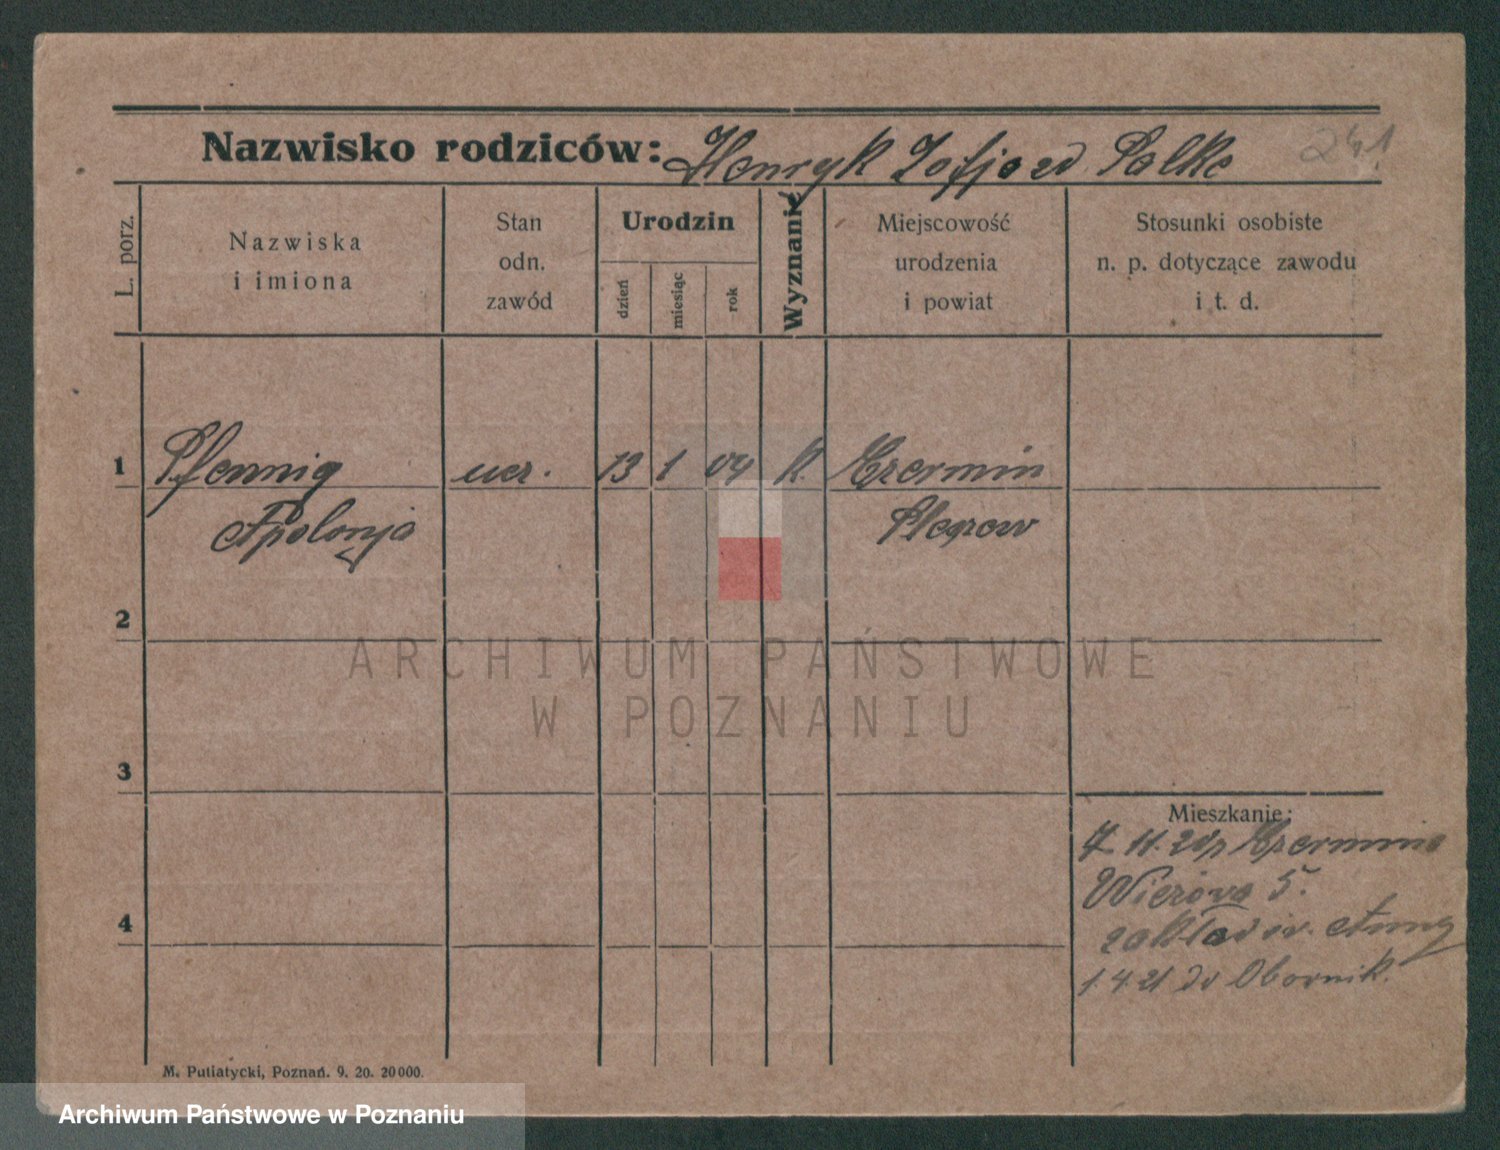 Nazwisko rodziców: Henryk Zofja zd. Palke
241
L. porz.
Nazwiska
i imiona
Stan
odn.
zawód
Urodzin
dzień
miesiąc
rok
Wyznanie
Miejscowość
urodzenia
i powiat
Stosunki osobiste
n. p. dotyczące zawodu
i t. d.
1 Pfennig ucz. 13 1 04 k. Czermin
Apolonja Pleszew
2
ARCHIWUM PAŃSTWOWE
W POZNANIU
3
Mieszkanie:
11. 20 z Czermina
5.
4
zakład św. Anny
1.4.21 do Obornik.
M. Putiatycki, Poznań. 9. 20. 20000.
Archiwum Państwowe w Poznaniu